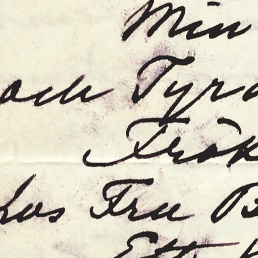 Min
och Tyra
Frök
hos Fru B
Ett